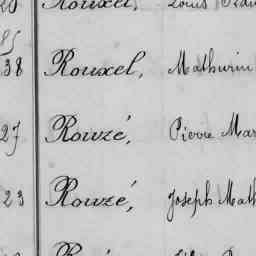 Rouxel, Louis
38 Rouxel, Mathurin
27 Rouzé, Pierre Mar
23 Rouzé, Joseph Math